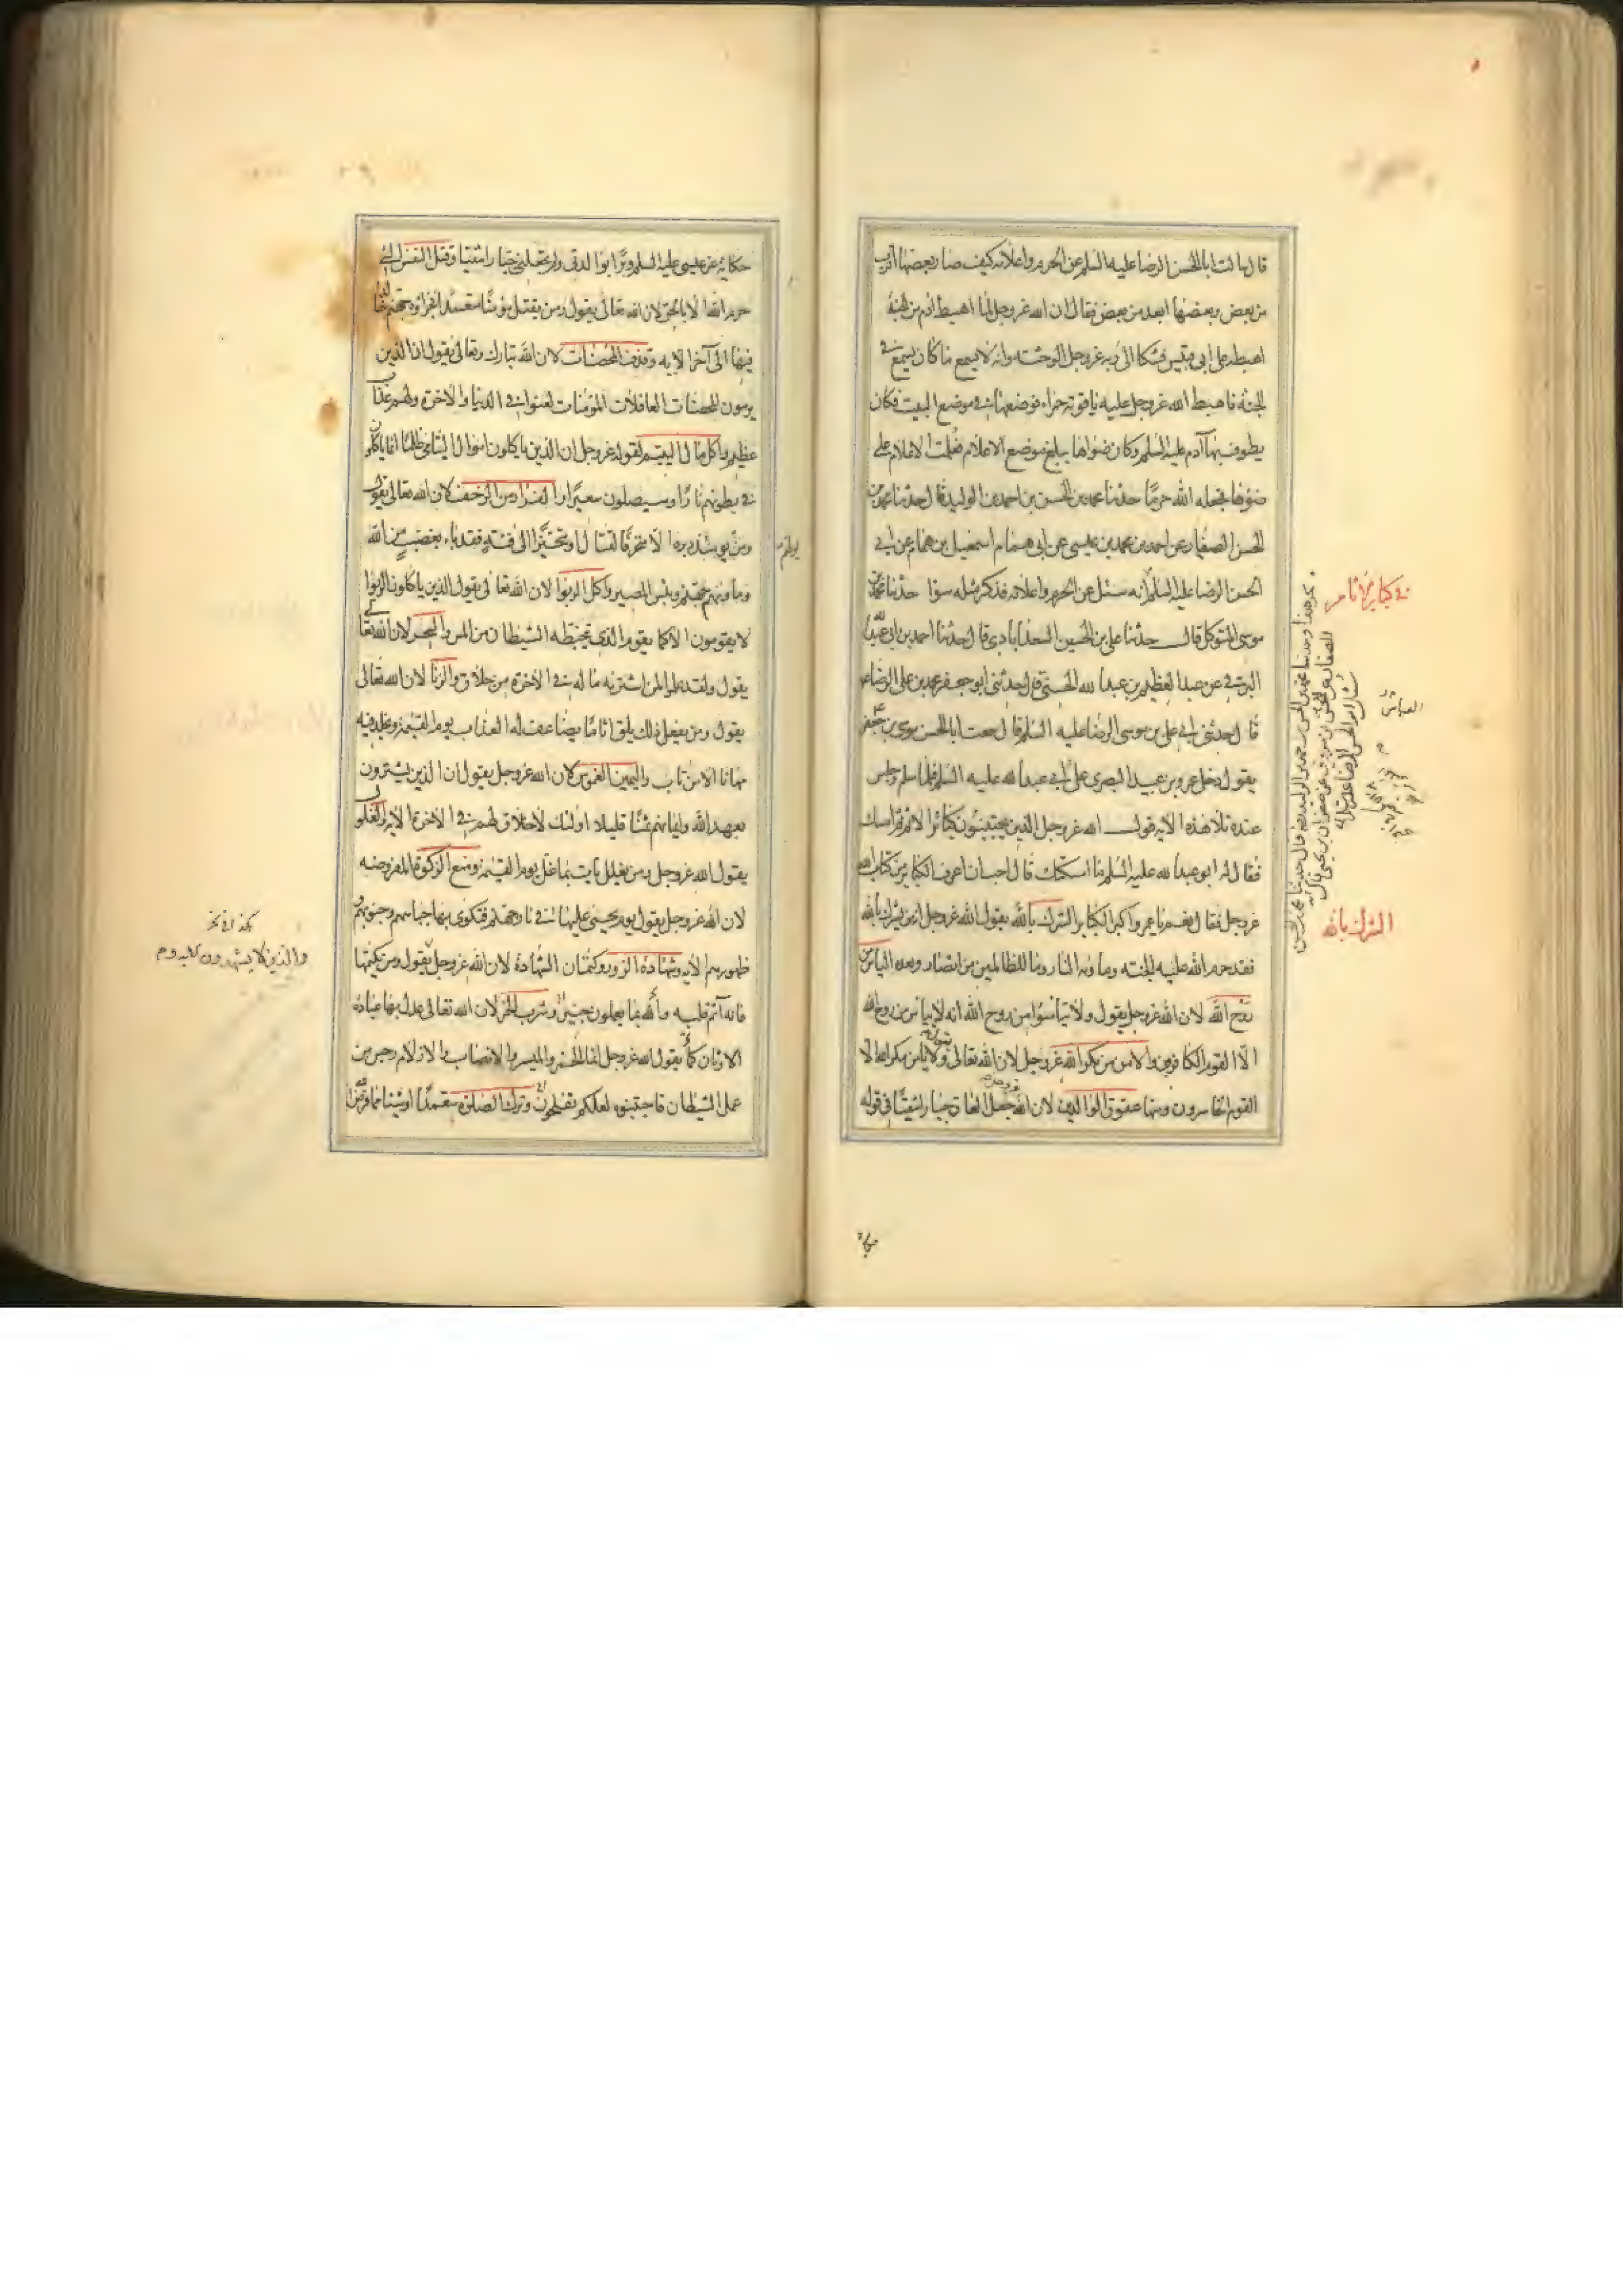 قال سالت ابا الحسن الرضا عليه السلم عن الحرم واعلامه كيف صار بعضها اقرب
من بعض وبعضها ابعد من بعض فقال ان الله عز وجل لما اهبط ادم من الجنة
اهبط على ابي قبيس فشكا الى ربه عز وجل الوحشه وانه لا يسمع ما كان يسمع في
الجنة فاهبط الله عز وجل عليه ياقوته حمراء فوضعها في موضع البيت فكان
يطوف بها آدم عليه السلم وكان ضوءها يبلغ موضع الاعلام فعلمت الاعلام على
ضوءها فجعله الله حرما حدثنا محمد بن الحسن بن احمد بن الوليد قال حدثنا محمد بن
الحسن الصفار عن احمد بن محمد بن عيسى عن ابي همام اسمعيل بن همام عن ابي
الحسن الرضا عليه السلم انه سئل عن الحرم واعلامه فذكر مثله سوا حدثنا محمد بن
موسى المتوكل قال حدثنا علي بن الحسين السعدابادي قال حدثنا احمد بن ابي عبد الله
البرقي عن عبد العظيم بن عبد الله الحسني قال حدثني ابو جعفر محمد بن علي الرضا ع
قال حدثني ابي علي بن موسى الرضا عليه السلم قال سمعت ابا الحسن موسى بن جعفر ع
يقول دخل عمرو بن عبيد البصري على ابي عبد الله عليه السلم فلما سلم وجلس
عنده تلا هذه الايه قول الله عز وجل الذين يجتنبون كبائر الاثم ثم امسك
فقال له ابو عبد الله عليه السلم ما اسكتك قال احب ان اعرف الكبائر من كتاب الله
عز وجل فقال نعم يا عمرو اكبر الكبائر الشرك بالله يقول الله عز وجل انه من يشرك بالله
فقد حرم الله عليه الجنته وماويه النار وما للظالمين من انصار وبعده الياس من
روح الله لان الله عز وجل يقول ولا تياسوا من روح الله انه لا يياس من روح الله
الا القوم الكافرين والامن من مكر الله عز وجل لان الله تعالى يقول ولا يامن مكر الله الا
القوم الخاسرون ومنها عقوق الوالدين لان الله عز وجل جعل العاق جبارا شقيا في قوله
في كبائر الاثام
الشرك بالله
حكاية عن عيسى عليه السلم وبرا بوالدتي ولم يجعلني جبارا شقيا وقتل النفس التي
حرم الله الا بالحق لان الله تعالى يقول ومن يقتل مؤمنا متعمدا فجزاؤه جهنم خالدا
فيها الى آخر الايه وقذف المحصنات لان الله تبارك وتعالى يقول ان الذين
يرمون المحصنات الغافلات المؤمنات لعنوا في الدنيا والاخرة ولهم عذاب
عظيم واكل مال اليتيم لقوله عز وجل ان الذين ياكلون اموال اليتامى ظلما انما ياكلون
في بطونهم نارا وسيصلون سعيرا والفرار من الزحف لان الله تعالى يقول
ومن يولهم يومئذ دبره الا متحرفا لقتال او متحيزا الى فئة فقد باء بغضب من الله
وماويهم جهنم وبئس المصير واكل الربوا لان الله تعالى يقول الذين ياكلون الربوا
لا يقومون الا كما يقوم الذي يتخبطه الشيطان من المس والسحر لان الله تعالى
يقول ولقد علموا لمن اشتريه ما له في الاخرة من خلاق والزنا لان الله تعالى
يقول ومن يفعل ذلك يلق اثاما يضاعف له العذاب يوم القيمة ويخلد فيه
مهانا الا من تاب واليمين الغموس لان الله عز وجل يقول ان الذين يشترون
بعهد الله وايمانهم ثمنا قليلا اولئك لا خلاق لهم في الاخرة الايه والغلول
يقول الله عز وجل ومن يغلل يات بما غل يوم القيمة ومنع الزكوة المفروضه
لان الله عز وجل يقول يوم يحمى عليها في نار جهنم فتكوى بها جباههم وجنوبهم و
ظهورهم الايه وشهادة الزور وكتمان الشهادة لان الله عز وجل يقول ومن يكتمها
فانه آثم قلبه والله بما يعملون خبير وشرب الخمر لان الله تعالى عدل بها عبادة
الاوثان كما يقول الله عز وجل انما الخمر والميسر والانصاب والازلام رجس من
عمل الشيطان فاجتنبوه لعلكم تفلحون وترك الصلوة متعمدا او شيئا مما فرض الله
والذين لا يشهدون الزور